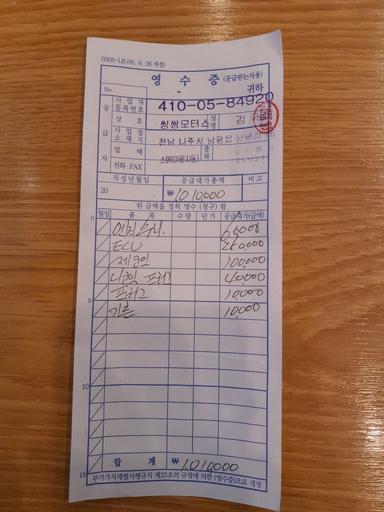 0303-1B(96. 6. 26 개정)
영 수 증 (공급받는자용)
No. 귀하
공급자
사업자등록번호 410-05-84920
상호 씽씽모터스 성명 김
사업장소재지 전남 나주시 남평읍
업태 소매(이륜자동) 종목
전화·FAX
작성년월일 공급대가총액 비고
20 . . ₩1,010,000
위 금액을 정히 영수 (청구) 함.
월일 품목 수량 단가 공급대가(금액)
엔진수리.
ECU
제코일 100,000
40,000
프러그 10,000
기름 10,000
5
10
15
합 계 ₩1,010,000
부가가치세법시행규칙 제25조의 규정에 의한 (영수증)으로 개정